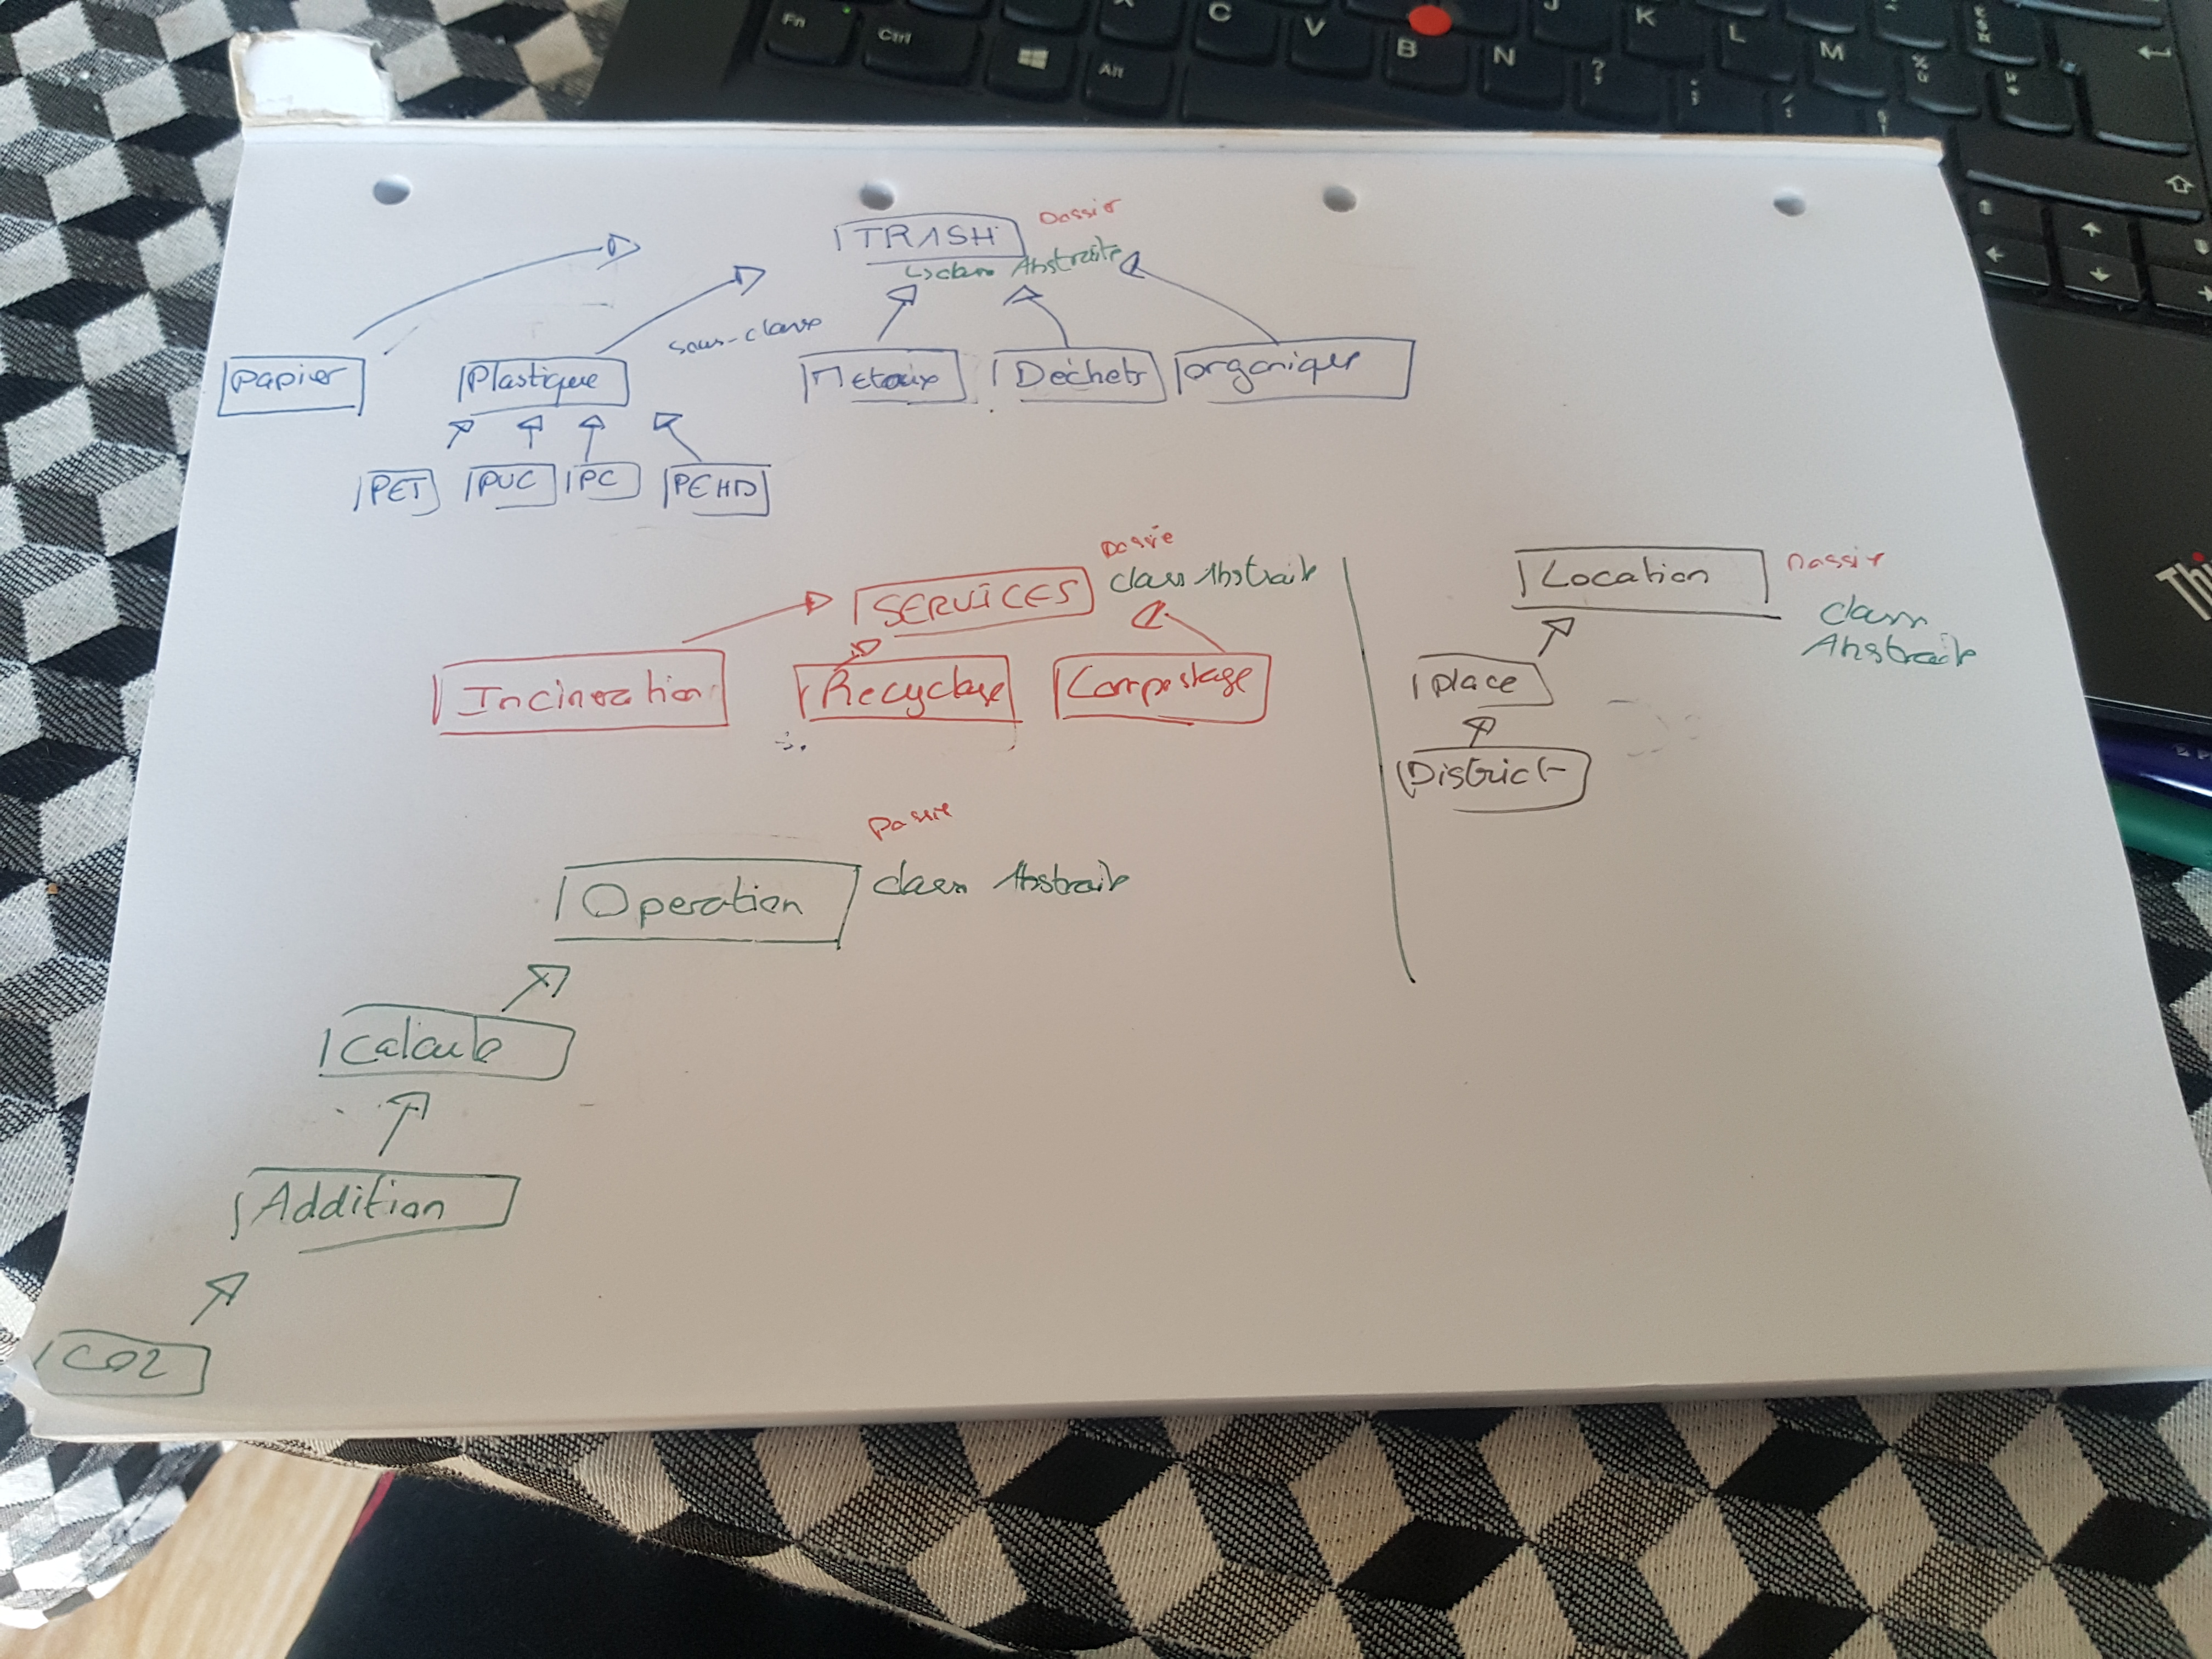 Fn
Ctrl
Alt
C
V
B
N
J
K
L
M
TRASH
Dossier
↳ class Abstraite
sous-classe
Papier
Plastique
Metaux
Déchets
organique
PET
PVC
PC
PEHD
SERVICES
class Abstraite
Incineration
Recyclage
Compostage
Location
Dossier
class
Abstraite
place
District
Operation
class Abstraite
Calcule
Addition
CO2
Thi